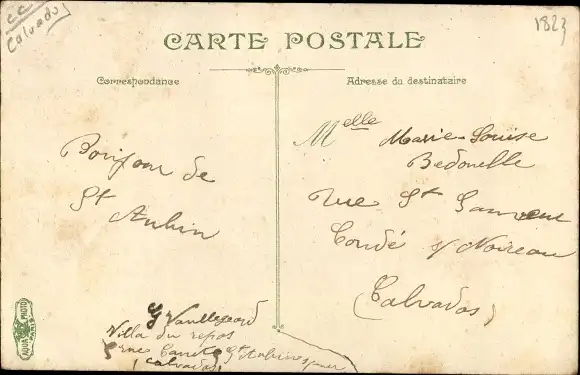 CC
Calvados
1823
CARTE POSTALE
Correspondance
Adresse du destinataire
Bonjour de
St Aubin
Melle Marie-Louise
Bedouelle
Rue St Sauveur
Condé s/ Noireau
(Calvados)
Villa du repos
rue St Aubin s/ mer
(Calvados)
AQUA PHOTO
PARIS